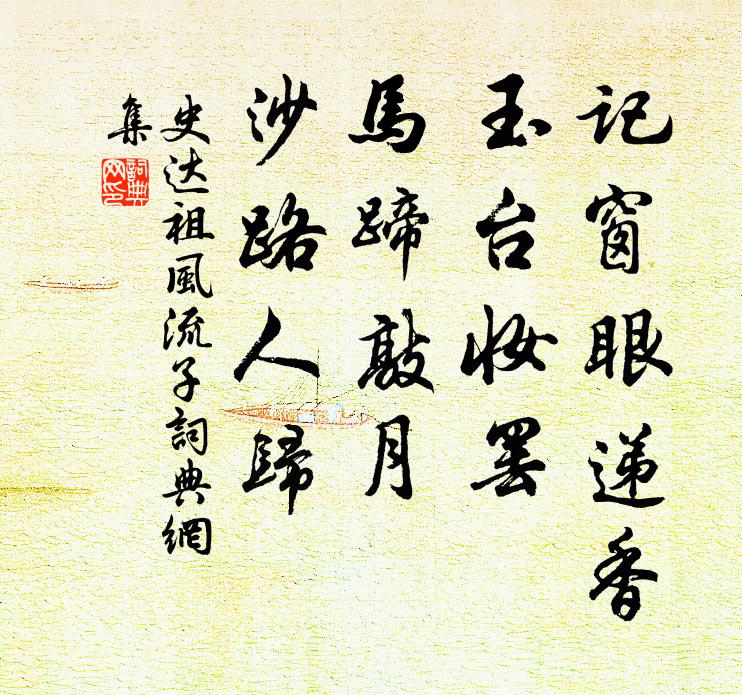 记窗眼递香
玉台妆罢
馬蹄敲月
沙路人歸
史达祖風流子詞典網
集
詞典
网印